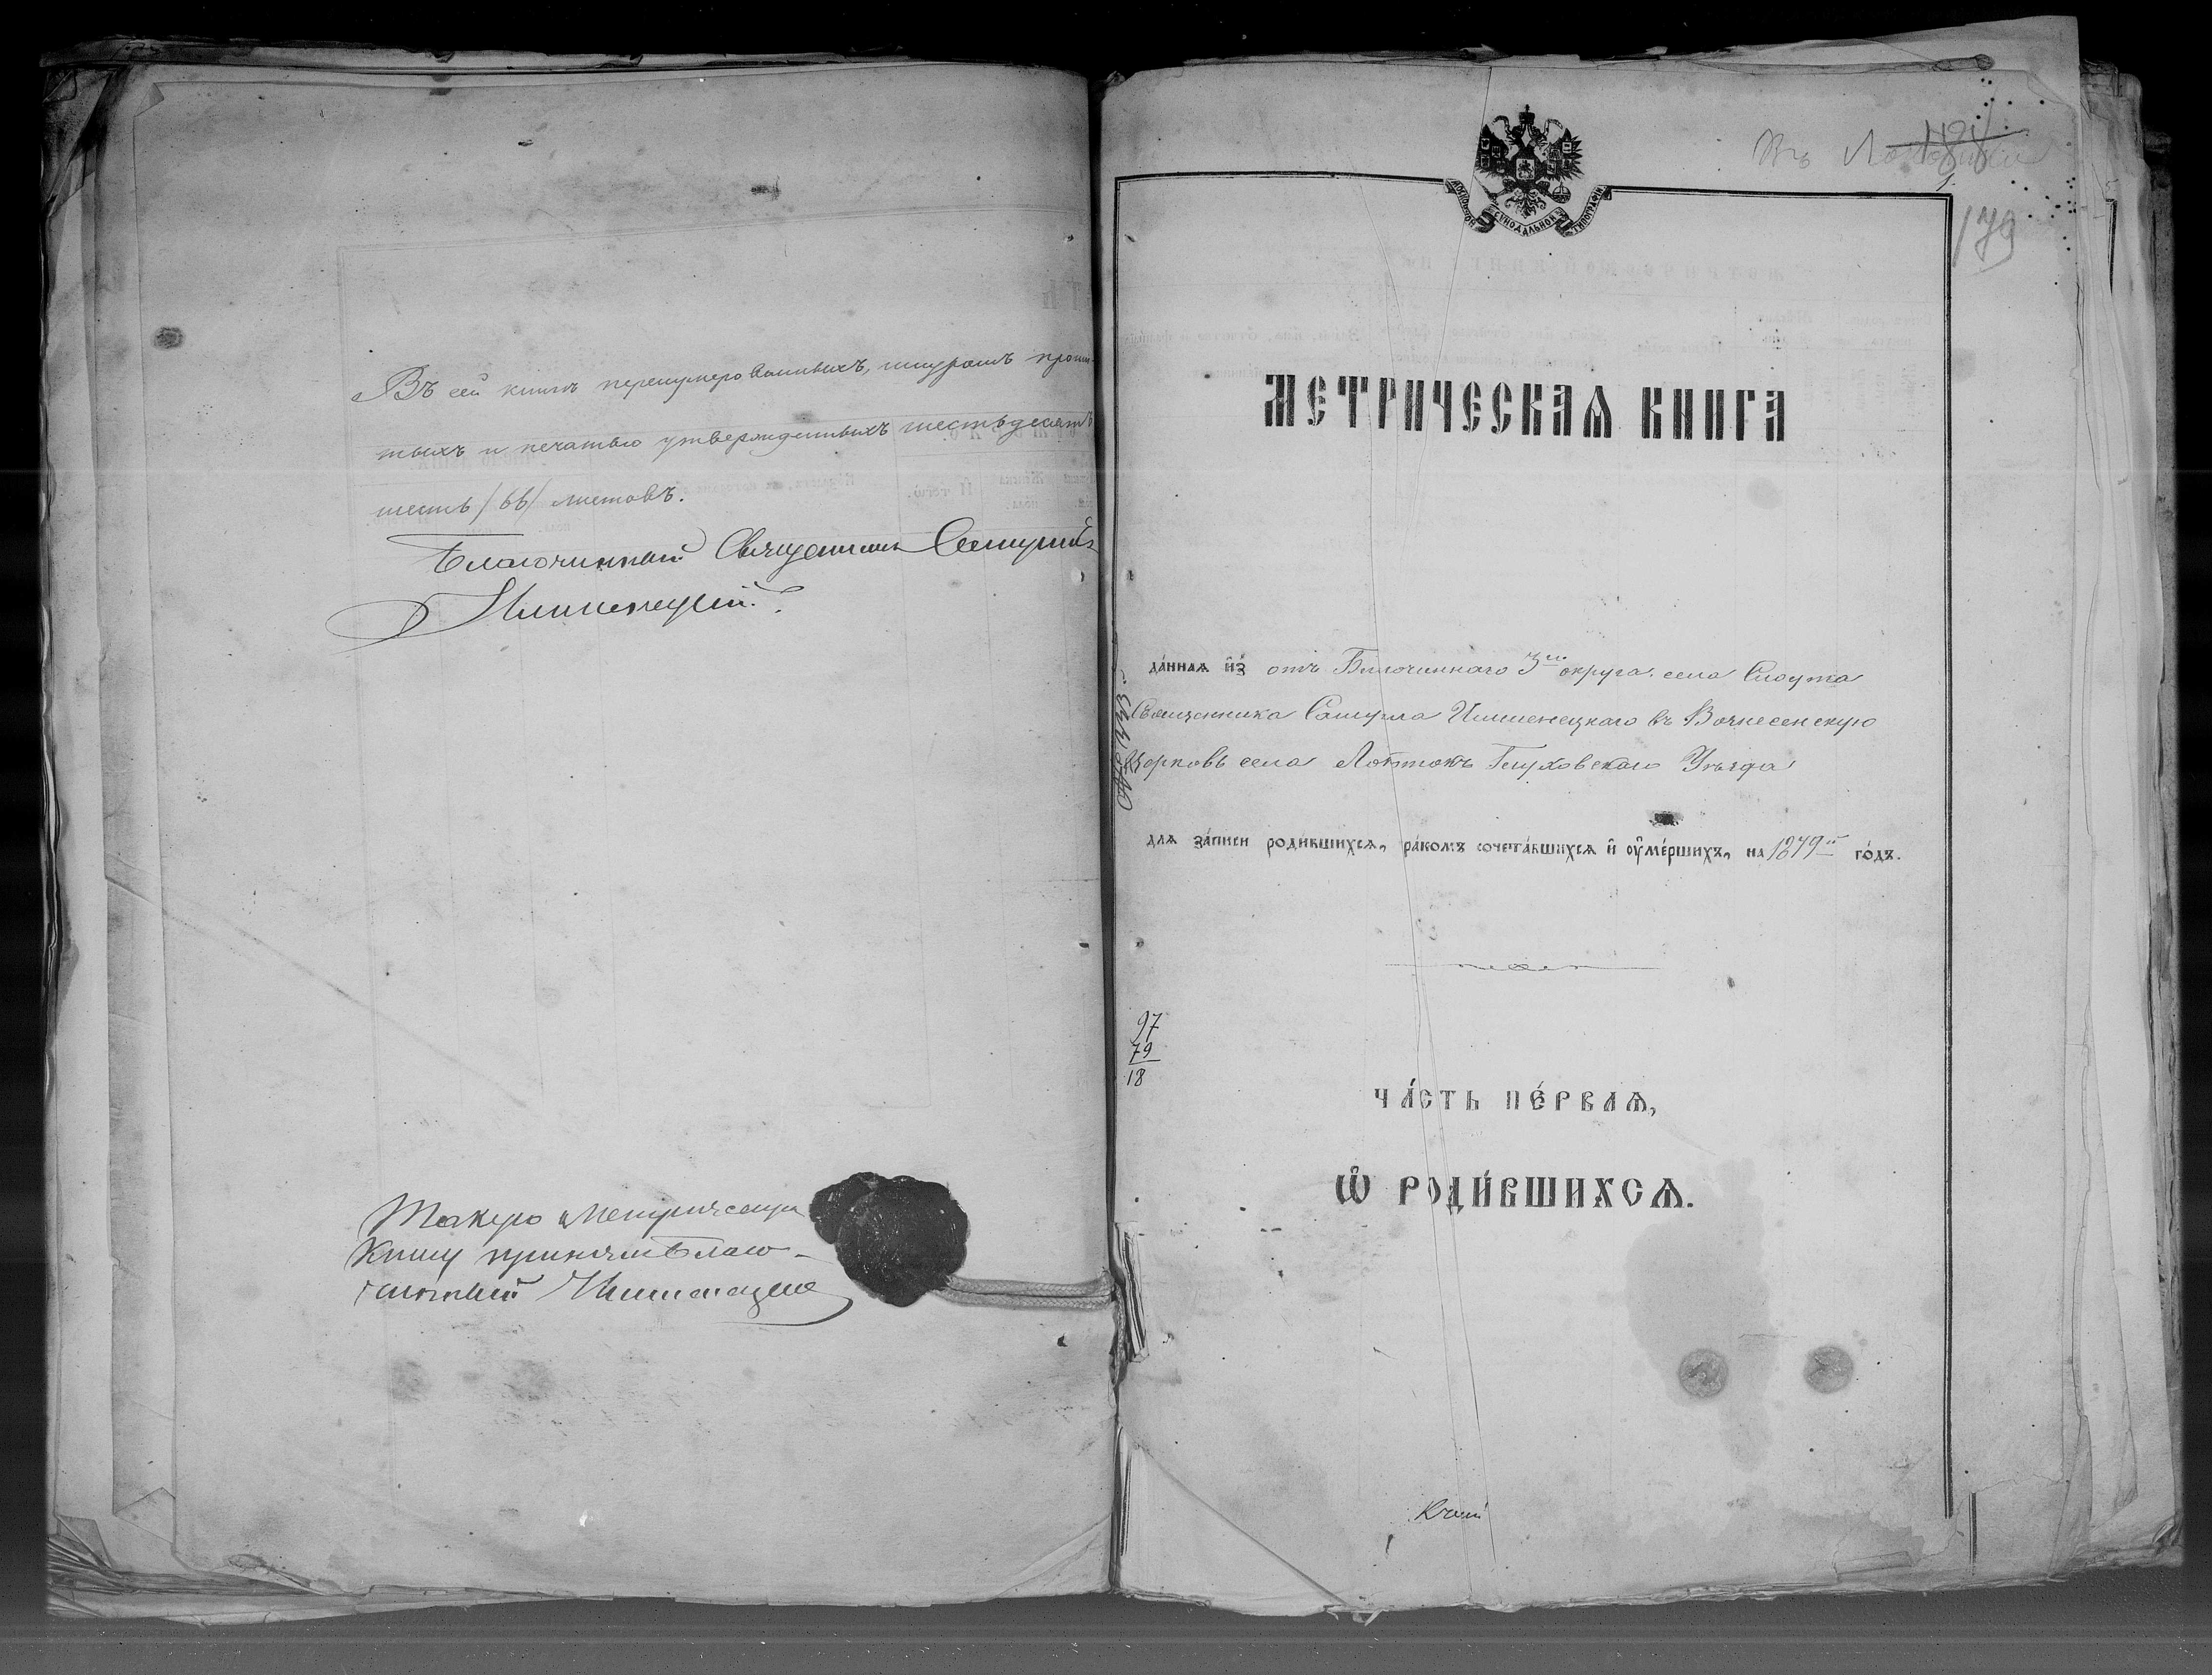 Въ сей книгѣ перенумерованныхъ, шнуромъ прошы-
тыхъ и печатью утвержденныхъ шестьдесятъ
шесть /66/ листовъ.
Благочинный Священникъ Самуилъ
Такую Метрическую
Книгу принялъ Благо-
чинный
Въ
188
1.
179
МОСКОВСКОЙ СѴНОДАЛЬНОЙ ТИПОГРАФІИ
МЕТРИЧЕСКАѦ КНИГА
да́ннаѧ и҆з̾ отъ Благочиннаго 3го округа села Слоута
Священника Самуила въ Вознесенскую
Церковь села Глуховскаго Уѣзда
длѧ за́писи роди́вшихсѧ, бра́комъ сочета́вшихсѧ и҆ ᲂу҆ме́ршихъ, на 1879й го́дъ.
97
79
18
ЧА́СТЬ ПЕ́РВАѦ,
Ѽ РОДИ́ВШИХСѦ.